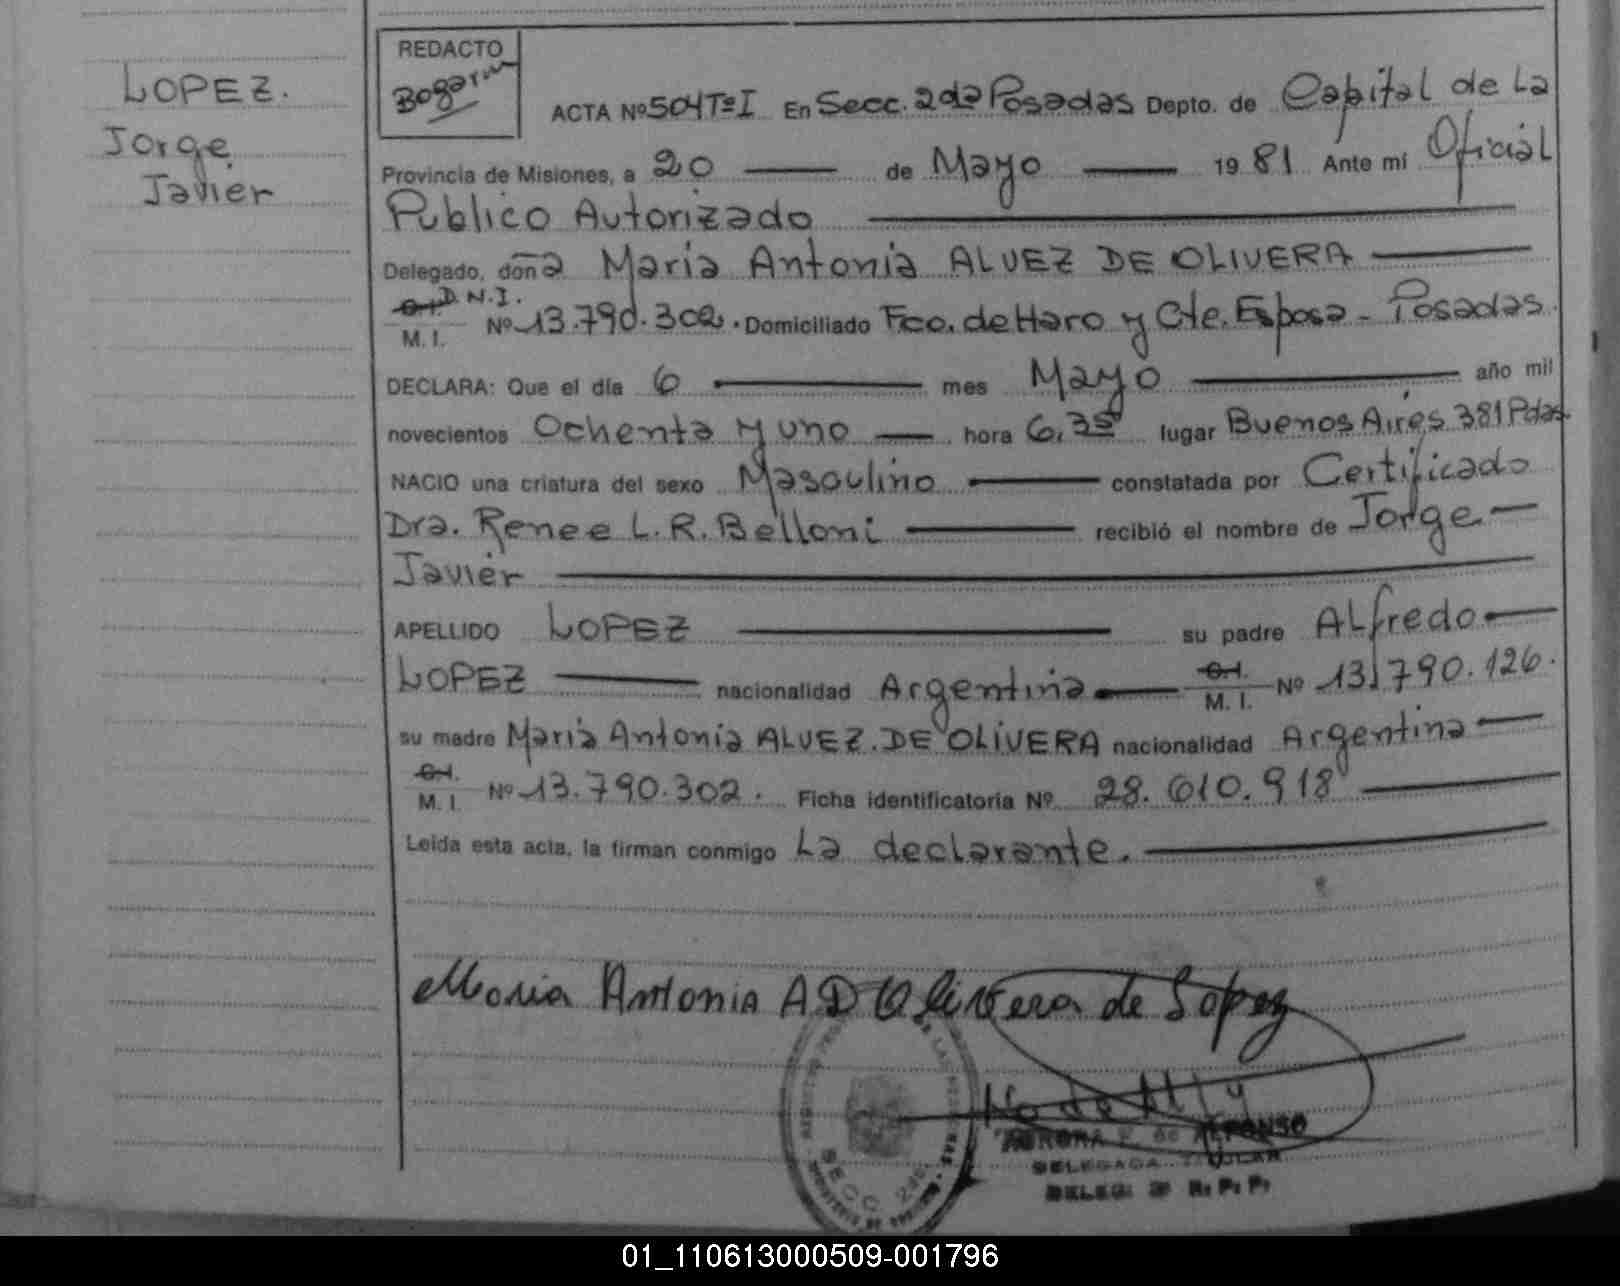 LOPEZ.
Jorge
Javier
REDACTO
Bogarin
ACTA Nº 504 Tº I En Secc. 2da Posadas Depto. de Capital de La
Provincia de Misiones, a 20 de Mayo 1981 Ante mí Oficial
Publico Autorizado
Delegado, doña Maria Antonia ALVEZ DE OLIVERA
D.N.I.
M. I. Nº 13.790.302. Domiciliado Fco. de Haro y Cte. Espora - Posadas.
DECLARA: Que el día 6 mes Mayo año mil
novecientos Ochenta y uno hora 6,35 lugar Buenos Aires 381 Pdas.
NACIO una criatura del sexo Masculino constatada por Certificado
Dra. Renee L. R. Belloni recibió el nombre de Jorge
Javier
APELLIDO LOPEZ su padre ALfredo
LOPEZ nacionalidad Argentina C.I. M. I. Nº 13.790.126.
su madre Maria Antonia ALVEZ DE OLIVERA nacionalidad Argentina
C.I. M. I. Nº 13.790.302. Ficha identificatoria Nº 28.610.918
Leída esta acta, la firman conmigo La declarante.
Maria Antonia A D Olivera de Lopez
SECC. 2da
AURORA de ALFONSO
DELEGADA TITULAR
DELEG. 2ª R. P. P.
01_110613000509-001796